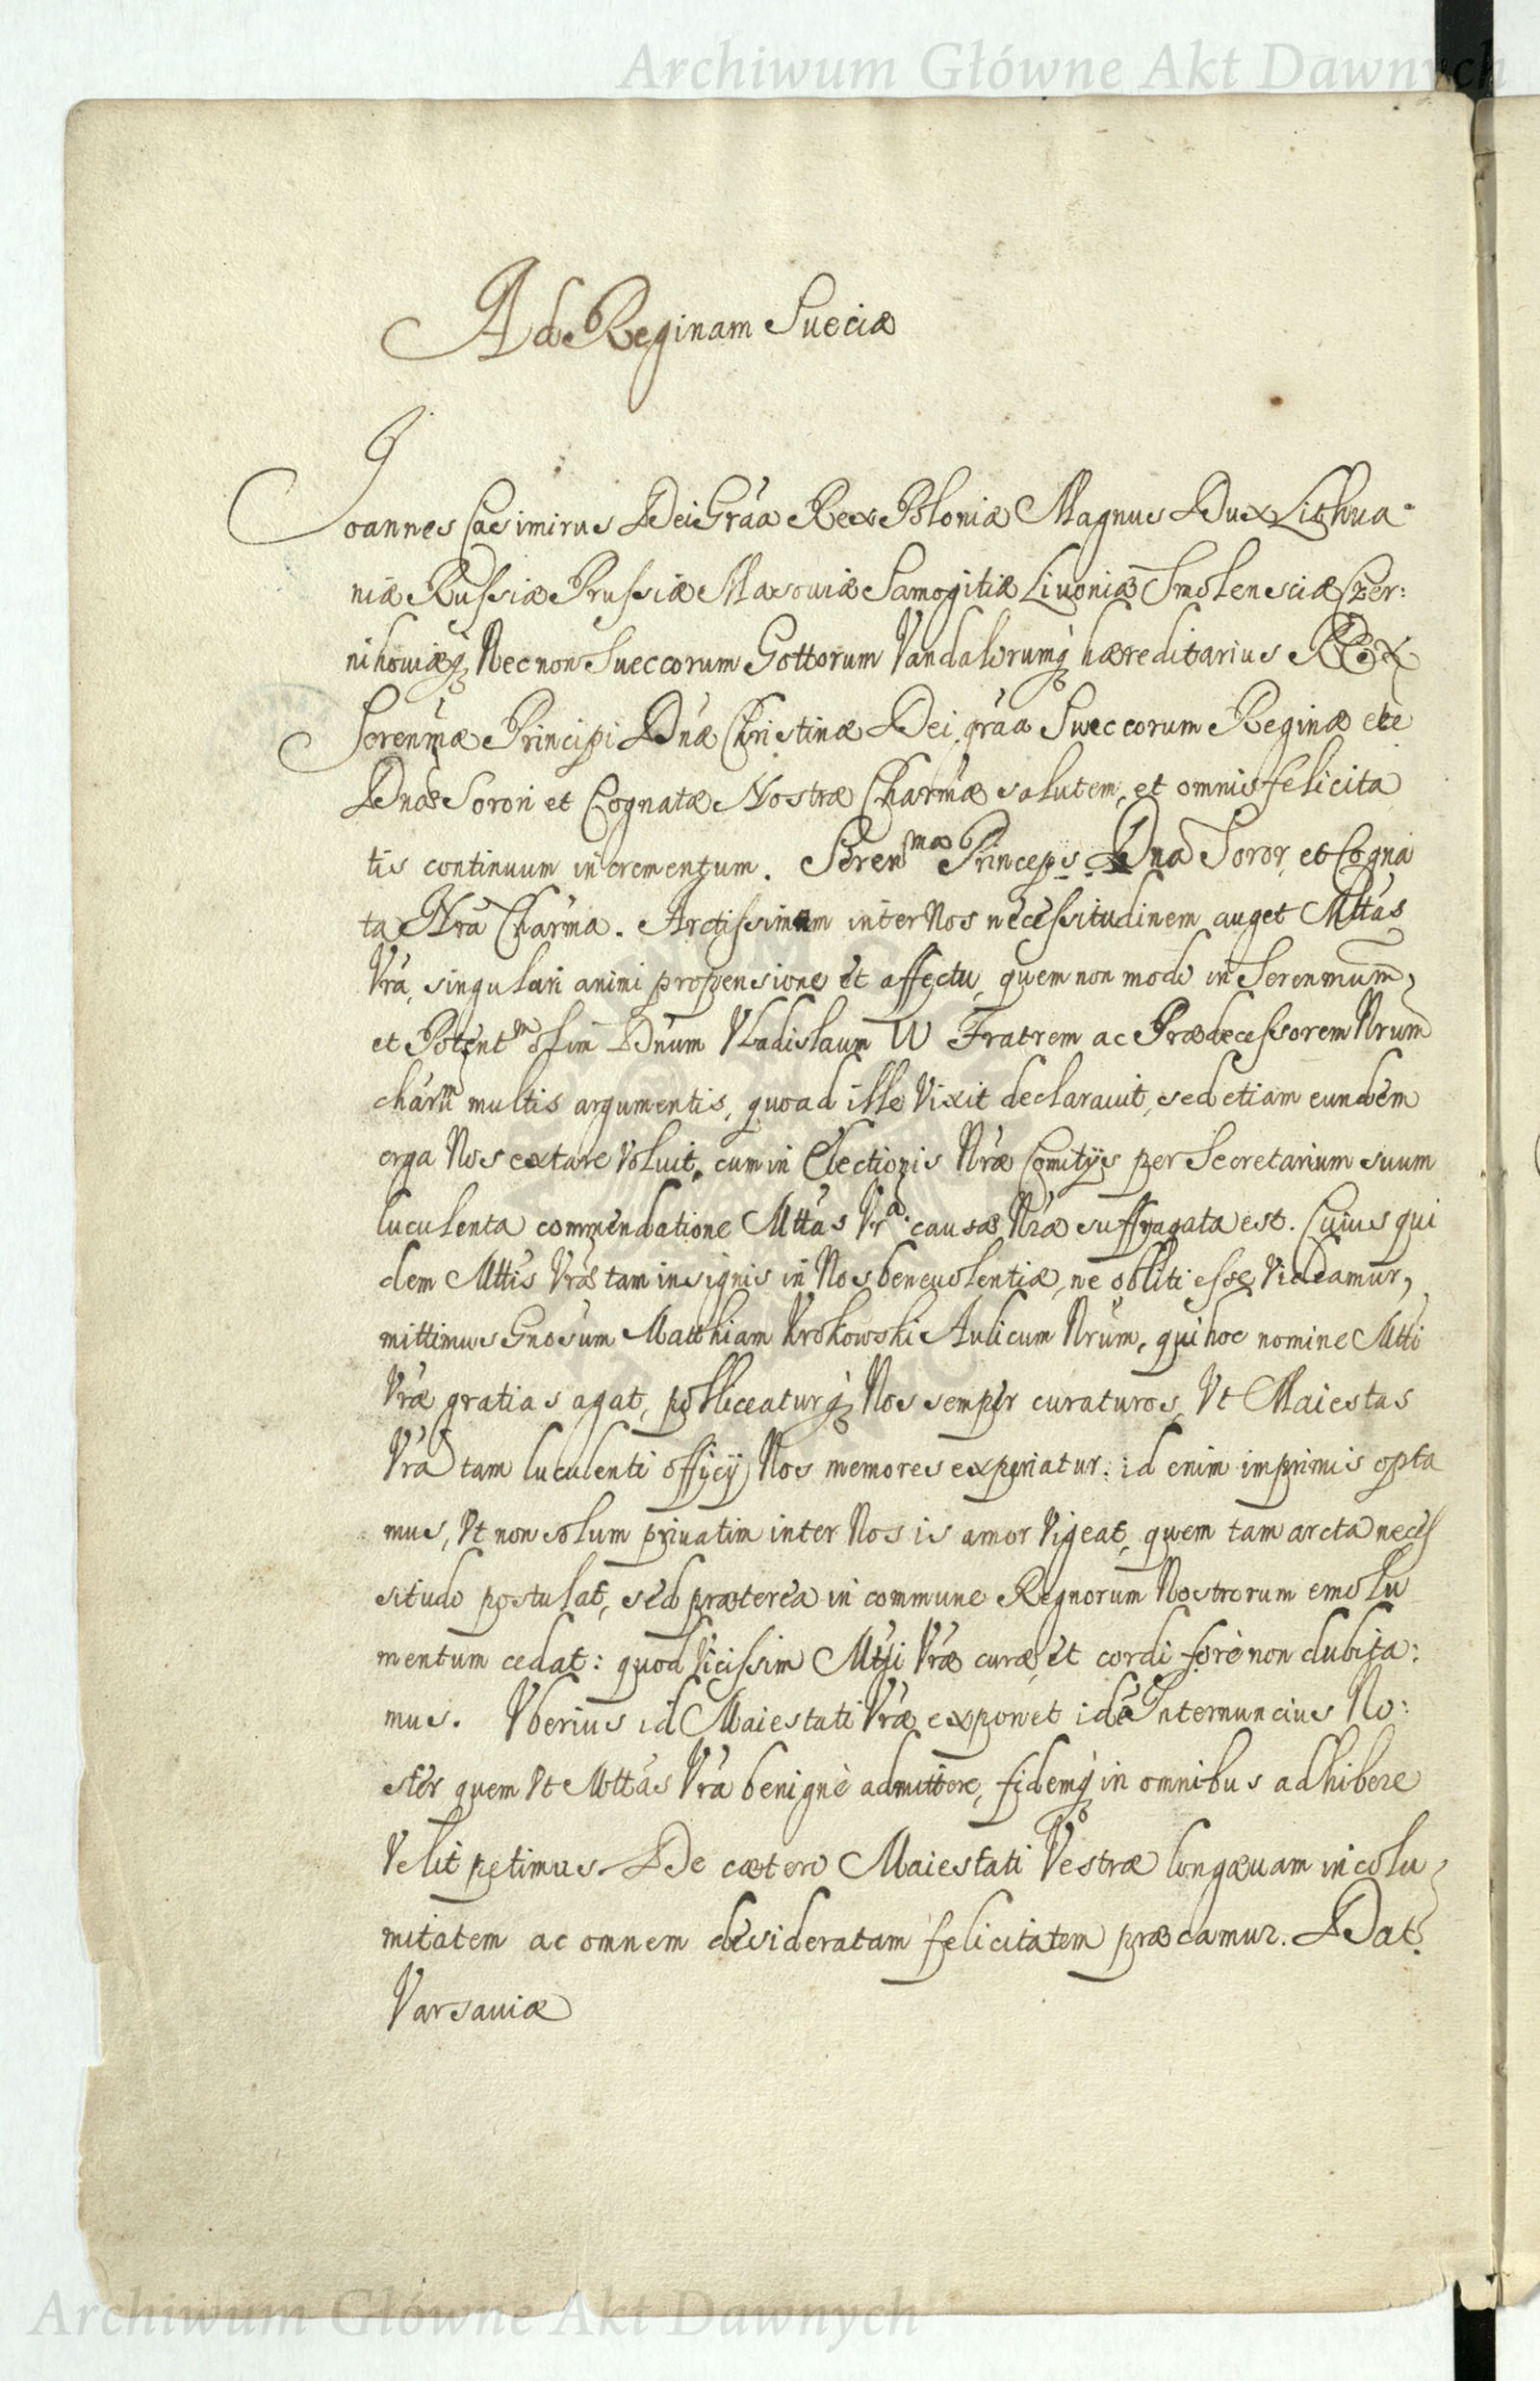 Archiwum Główne Akt Dawnych
Ad Reginam Sueciæ
Joannes Casimirus Dei Gra͠a Rex Poloniæ Magnus Dux Lithua
niæ Russiæ Prussiæ Masouiæ Samogitiæ Liuoniæ Smolensciæ Czer:
nihouiæq̃ Necnon Sueccorum Gottorum Vandalorumq̃ hæreditarius Rex
Seren͠mæ Principi Dn͠æ Christinæ Dei gra͠a Sueccorum Reginæ etc
Dnæ Sorori et Cognatæ Nostræ Char͠mæ salutem, et omnis felicita
tis continuum incrementum. Seren͏ma Princeps Dna Soror, et Cogna
ta Nr͠a Char͠ma. Arctissimam inter Nos necessitudinem auget Mtt͠as
Vr͠a, singulari animi propensione et affectu, quem non modo in Seren͠mum,
et Potentm̃ olim Dn͠um Vladislaum IV Fratrem ac Prædecessorem Nr͠um
char͠m multis argumentis, quoad ille vixit declarauit, sed etiam eundem
erga Nos extare voluit, cum in Electionis Nr͠æ Comitijs per Secretarium suum
luculenta commendatione Mtt͠as Vra. causæ Nr͠æ suffragata est. Cuius qui
dem Mtt͠is Vr͠æ tam insignis in Nos beneuolentiæ, ne obliti esse videamur,
mittimus Gnosum Matthiam Krokowski Aulicum Nr͠um, qui hoc nomine Mtti
Vr͠æ gratias agat, polliceaturq̃ Nos semper curaturos, Vt Maiestas
Vr͠a tam luculenti officij Nos memores experiatur: id enim imprimis opta
mus, Vt non solum priuatim inter Nos is amor vigeat, quem tam arcta neces
situdo postulat, sed præterea in commune Regnorum Nostrorum emolu
mentum cedat: quod vicissim Mtti Vr͠æ curæ, et cordi fore non dubita:
mus. Vberius id Maiestati Vr͠æ exponet idẽ Internuncius No:
ster quem Vt Mtt͠as Vr͠a benignè admittere, fidemq̃ in omnibus adhibere
Velit petimus. De cætero Maiestati Vestræ longæuam incolu
mitatem ac omnem desideratam felicitatem præcamur. Dat.
Varsauiæ
Archiwum Główne Akt Dawnych